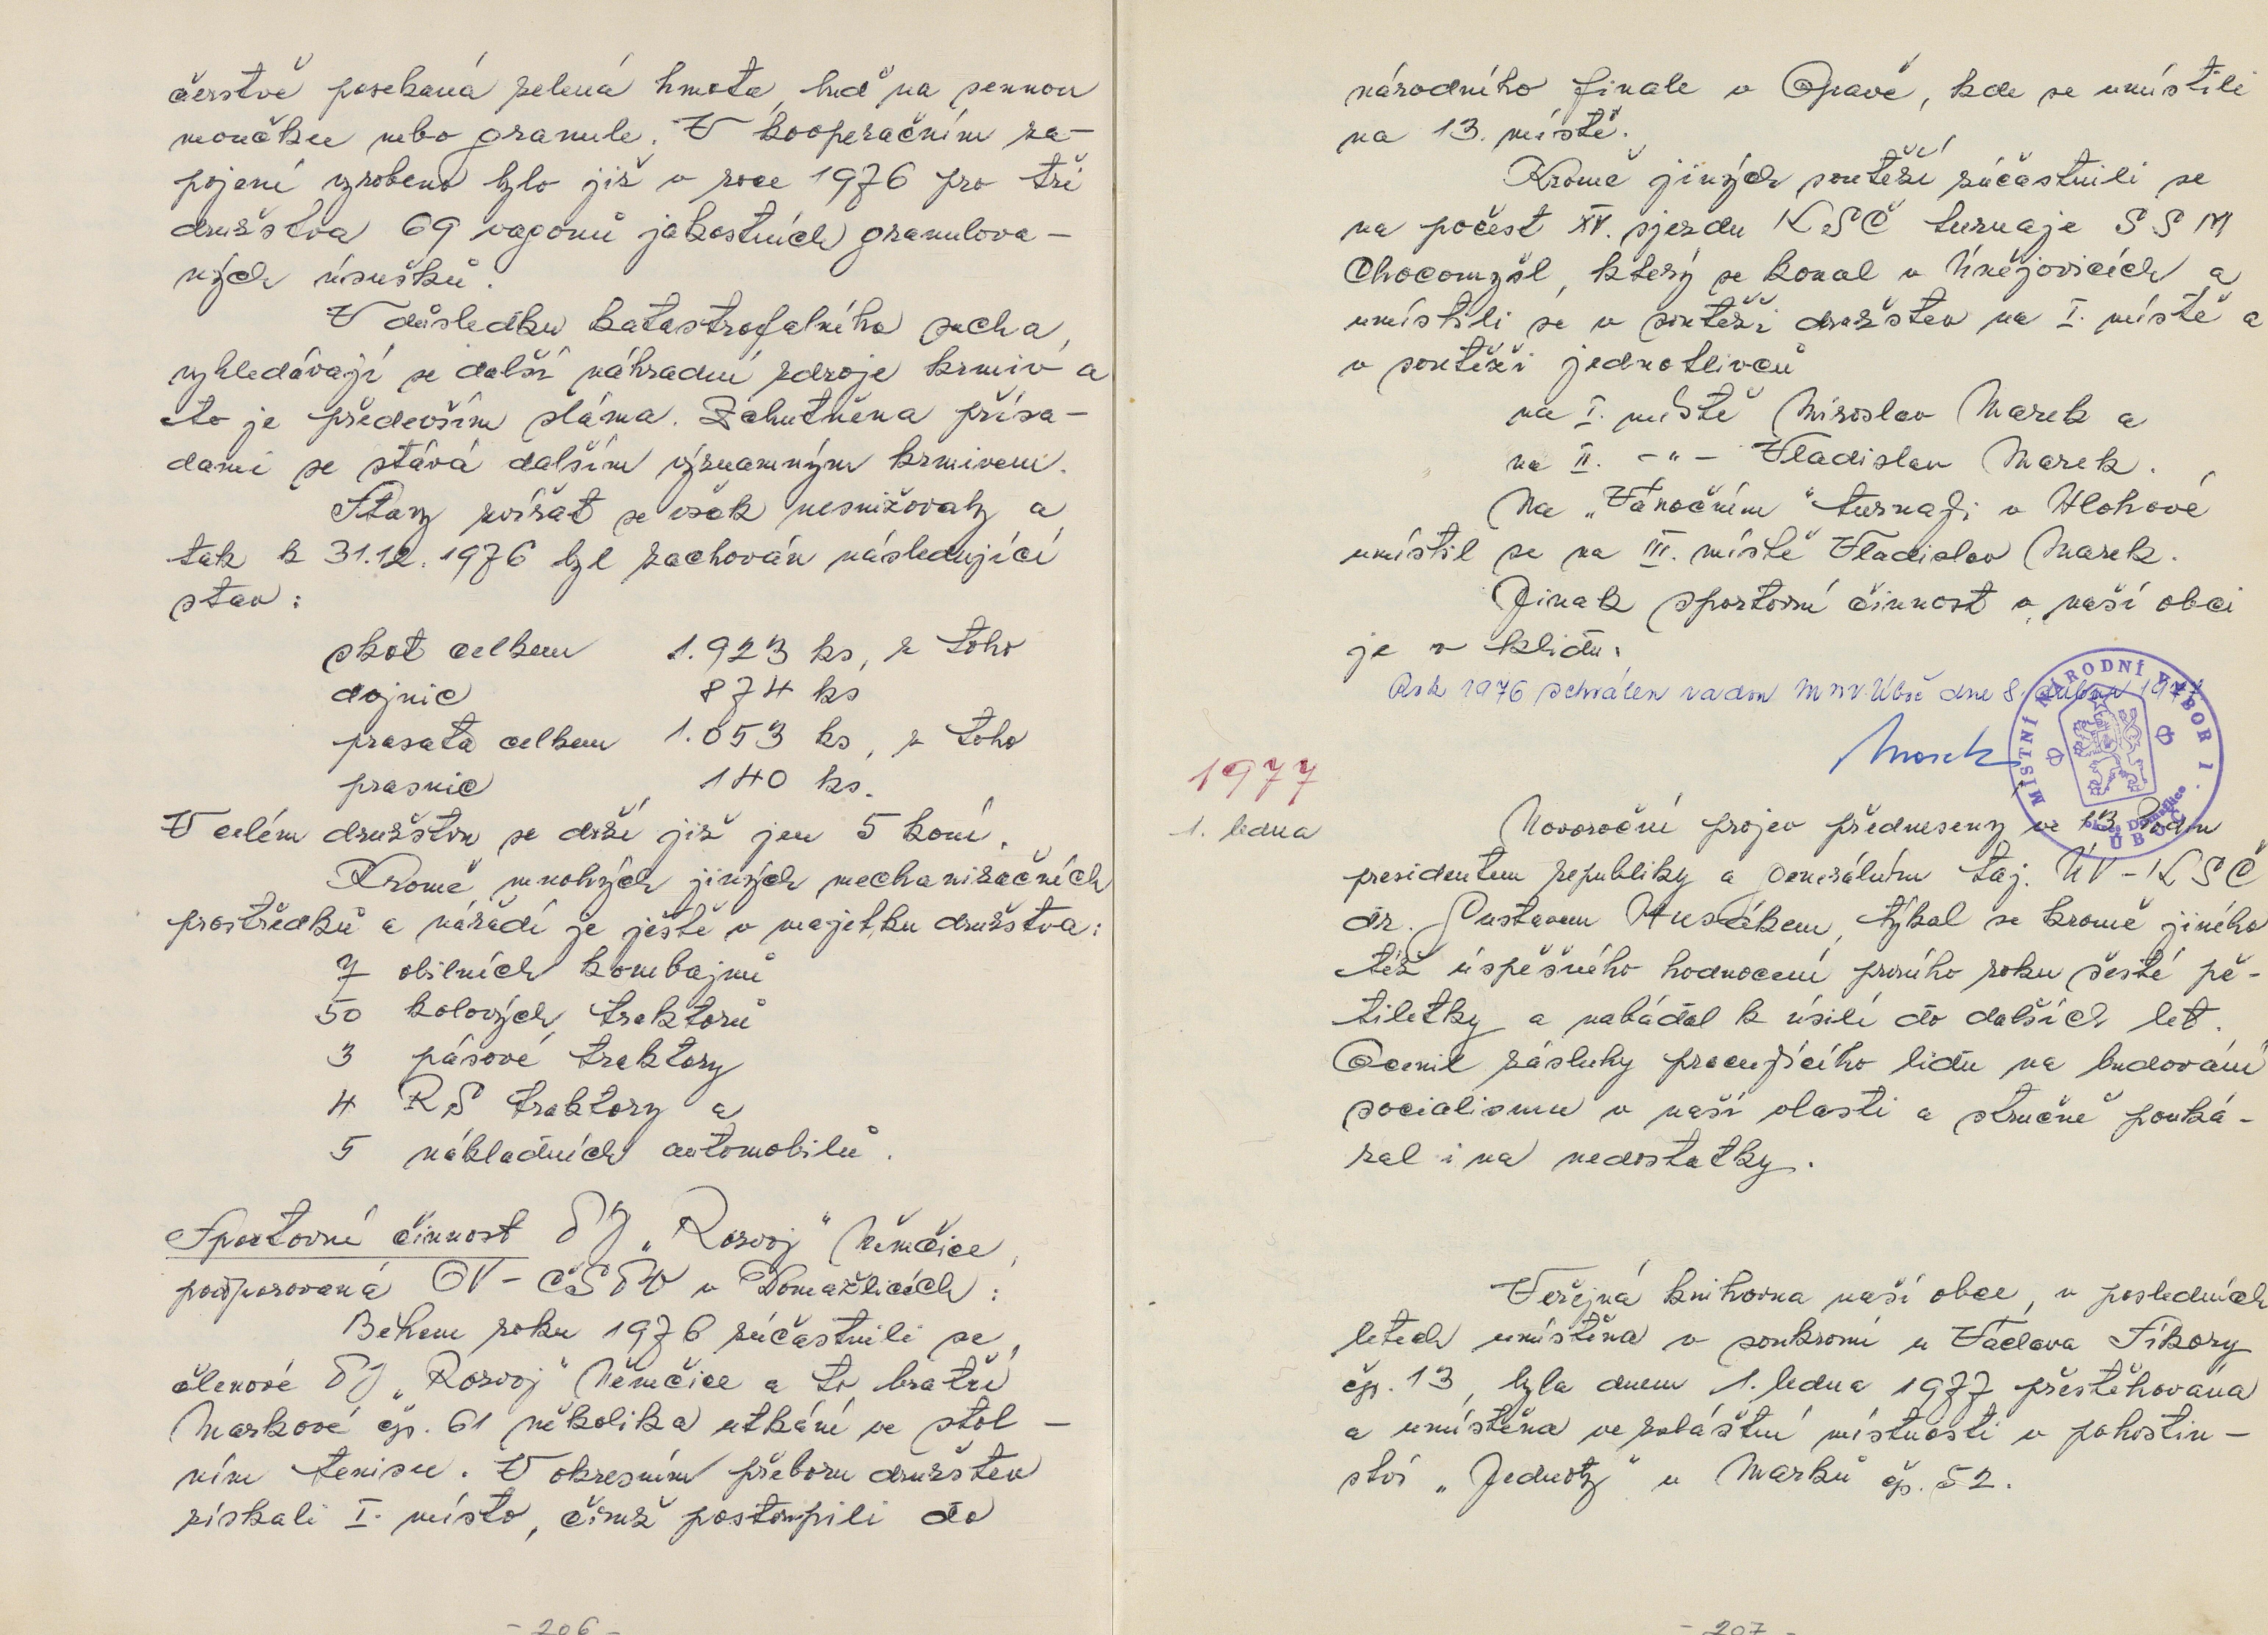 čerstvě posekaná zelená hmota, buď na sennou
moučku nebo granule. V kooperačním za-
pojení vyrobeno bylo již v roce 1976 pro tři
družstva 69 vagonů jakostních granulova-
ných úsušků.
V důsledku katastrofalního sucha,
vyhledávají se další náhradní zdroje krmiv a
to je především sláma. Zchutněna přísa-
dami se stává dalším významným krmivem.
Stavy zvířat se však nesnižovaly a
tak k 31.12.1976 byl zachován následující
stav:
skot celkem 1.923 ks, z toho
dojnic 874 ks
prasata celkem 1.053 ks, z toho
prasnic 140 ks.
V celém družstvu se drží již jen 5 koní.
Kromě mnohých jiných mechanizačních
prostředků a nářadí je ještě v majetku družstva:
7 obilních kombajnů
50 kolových traktorů
3 pásové traktory
4 RS traktory a
5 nákladních automobilů.
Sportovní činnost TJ „Rozvoj“ Němčice,
podporovaná OV-ČSTV v Domažlicích:
Během roku 1976 zúčastnili se,
členové TJ „Rozvoj“ Němčice a to bratři
Markové čp. 61 několika utkání ve stol-
ním tenisu. V okresním přeboru družstev
získali I. místo, čímž postoupili do
- 206 -
národního finale v Opavě, kde se umístili
na 13. místě.
Kromě jiných soutěží zúčastnili se
na počest XV. sjezdu KSČ turnaje SSM
Chocomyšl, který se konal v Únějovicích a
umístili se v soutěži družstev na I. místě a
v soutěži jednotlivců
na I. místě Miroslav Marek a
na II. -"- Vladislav Marek.
Na „Vánočním“ turnaji v Hlohové
umístil se na III. místě Vladislav Marek.
Jinak sportovní činnost v naší obci
je v klidu.
Rok 1976 schválen radou MNV Úboč dne 8. dubna 1977
MÍSTNÍ NÁRODNÍ VÝBOR 1.
okres Domažlice
ÚBOČ
1977
1. ledna
Novoroční projev přednesený ve 13 hodin
presidentem republiky a generálním taj. ÚV-KSČ
dr. Gustavem Husákem, týkal se kromě jiného
též úspěšného hodnocení prvního roku šesté pě-
tiletky a nabádal k úsilí do dalších let.
Ocenil zásluhy pracujícího lidu na budování
socialismu v naší vlasti a stručně pouká-
zal i na nedostatky.
Veřejná knihovna naší obce, v posledních
letech umístěna v soukromí u Václava Sikory
čp. 13, byla dnem 1. ledna 1977 přestěhována
a umístěna ve zvláštní místnosti v pohostin-
ství „Jednoty“ u Marků čp. 52.
- 207 -